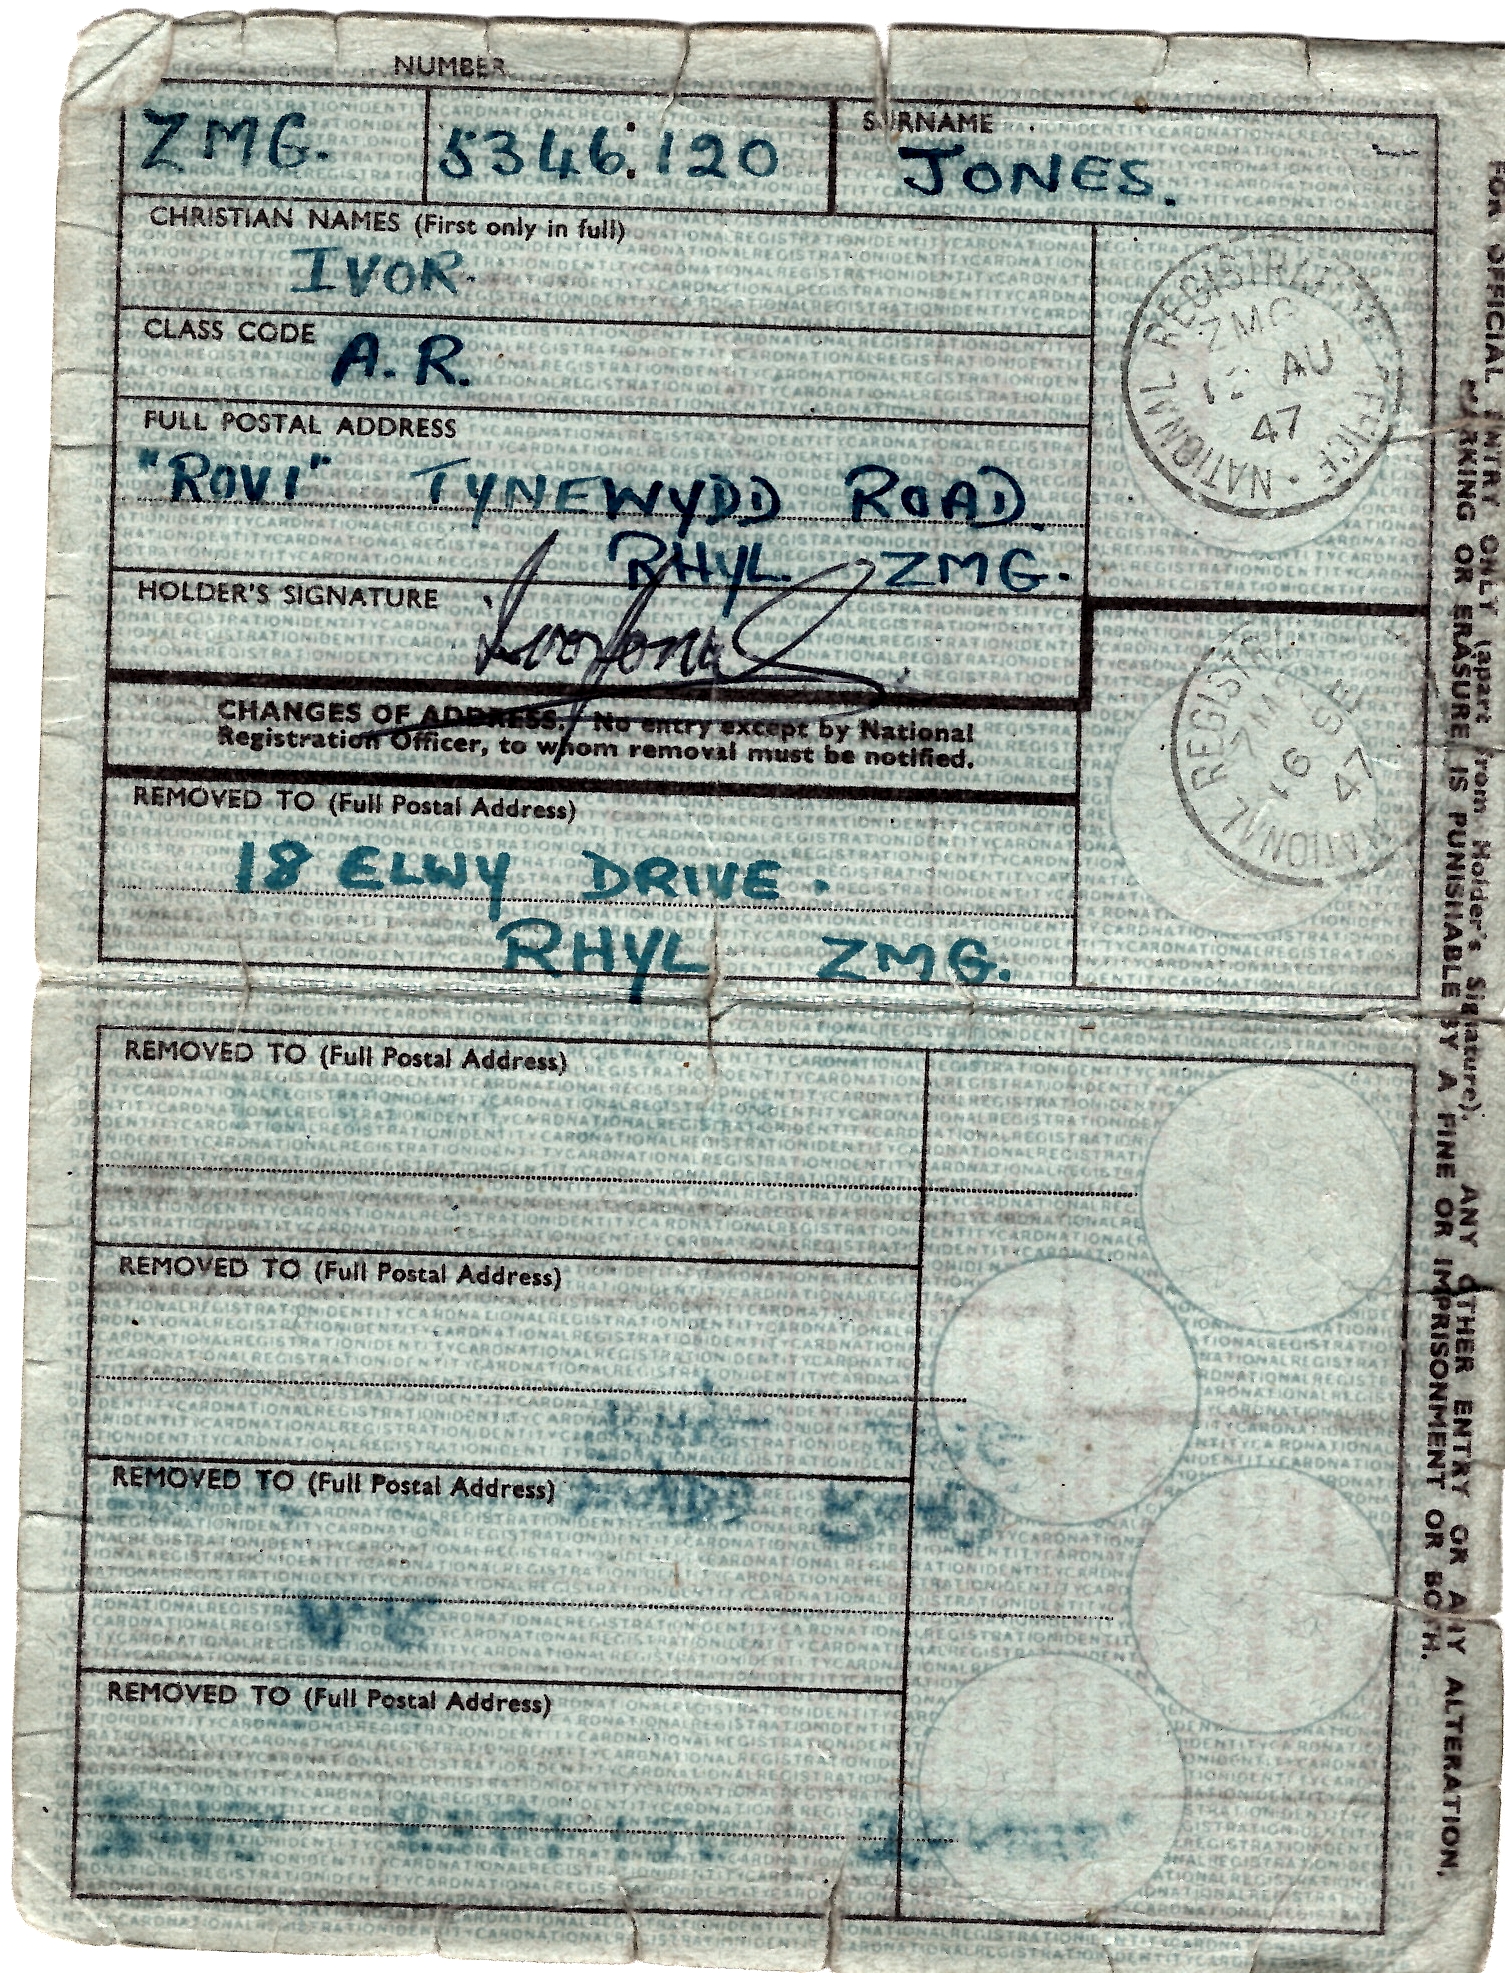 NUMBER
ZMG. 5346:120
SURNAME
JONES.
CHRISTIAN NAMES (First only in full)
IVOR.
CLASS CODE
A.R.
FULL POSTAL ADDRESS
"ROVI" TYNEWYDD ROAD.
RHYL ZMG.
HOLDER'S SIGNATURE
Ivor Jones
NATIONAL REGISTRATION OFFICE
ZMG
AU
47
CHANGES OF ADDRESS. No entry except by National
Registration Officer, to whom removal must be notified.
REMOVED TO (Full Postal Address)
18 ELWY DRIVE.
RHYL ZMG.
NATIONAL REGISTR
ZM
16 SE
47
REMOVED TO (Full Postal Address)
REMOVED TO (Full Postal Address)
REMOVED TO (Full Postal Address)
REMOVED TO (Full Postal Address)
FOR OFFICIAL ENTRY ONLY (apart from Holder's Signature). ANY OTHER ENTRY OR ANY ALTERATION,
MARKING OR ERASURE, IS PUNISHABLE BY A FINE OR IMPRISONMENT OR BOTH.